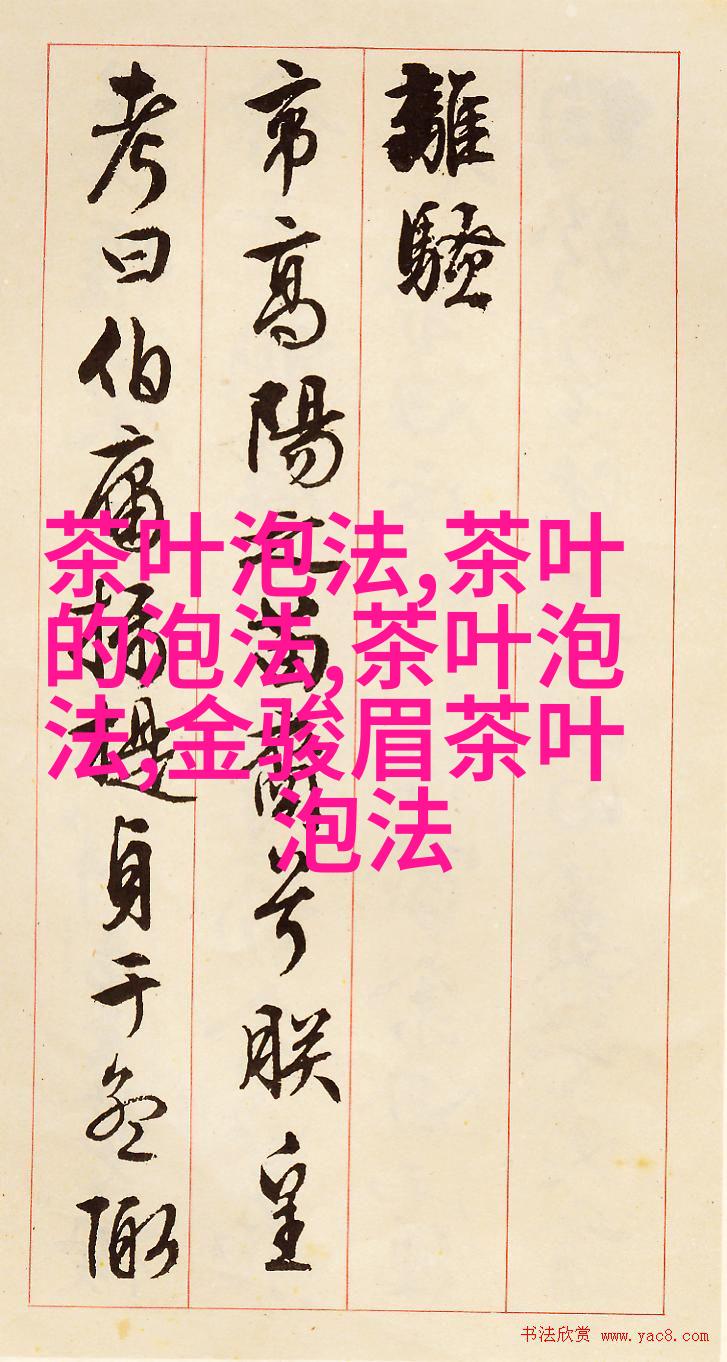 離騷
帝高陽之苗裔兮朕皇
考曰伯庸攝提貞于孟陬
茶叶泡法,茶叶
的泡法,茶叶泡
法,金骏眉茶叶
泡法
书法欣赏 www.yac8.com